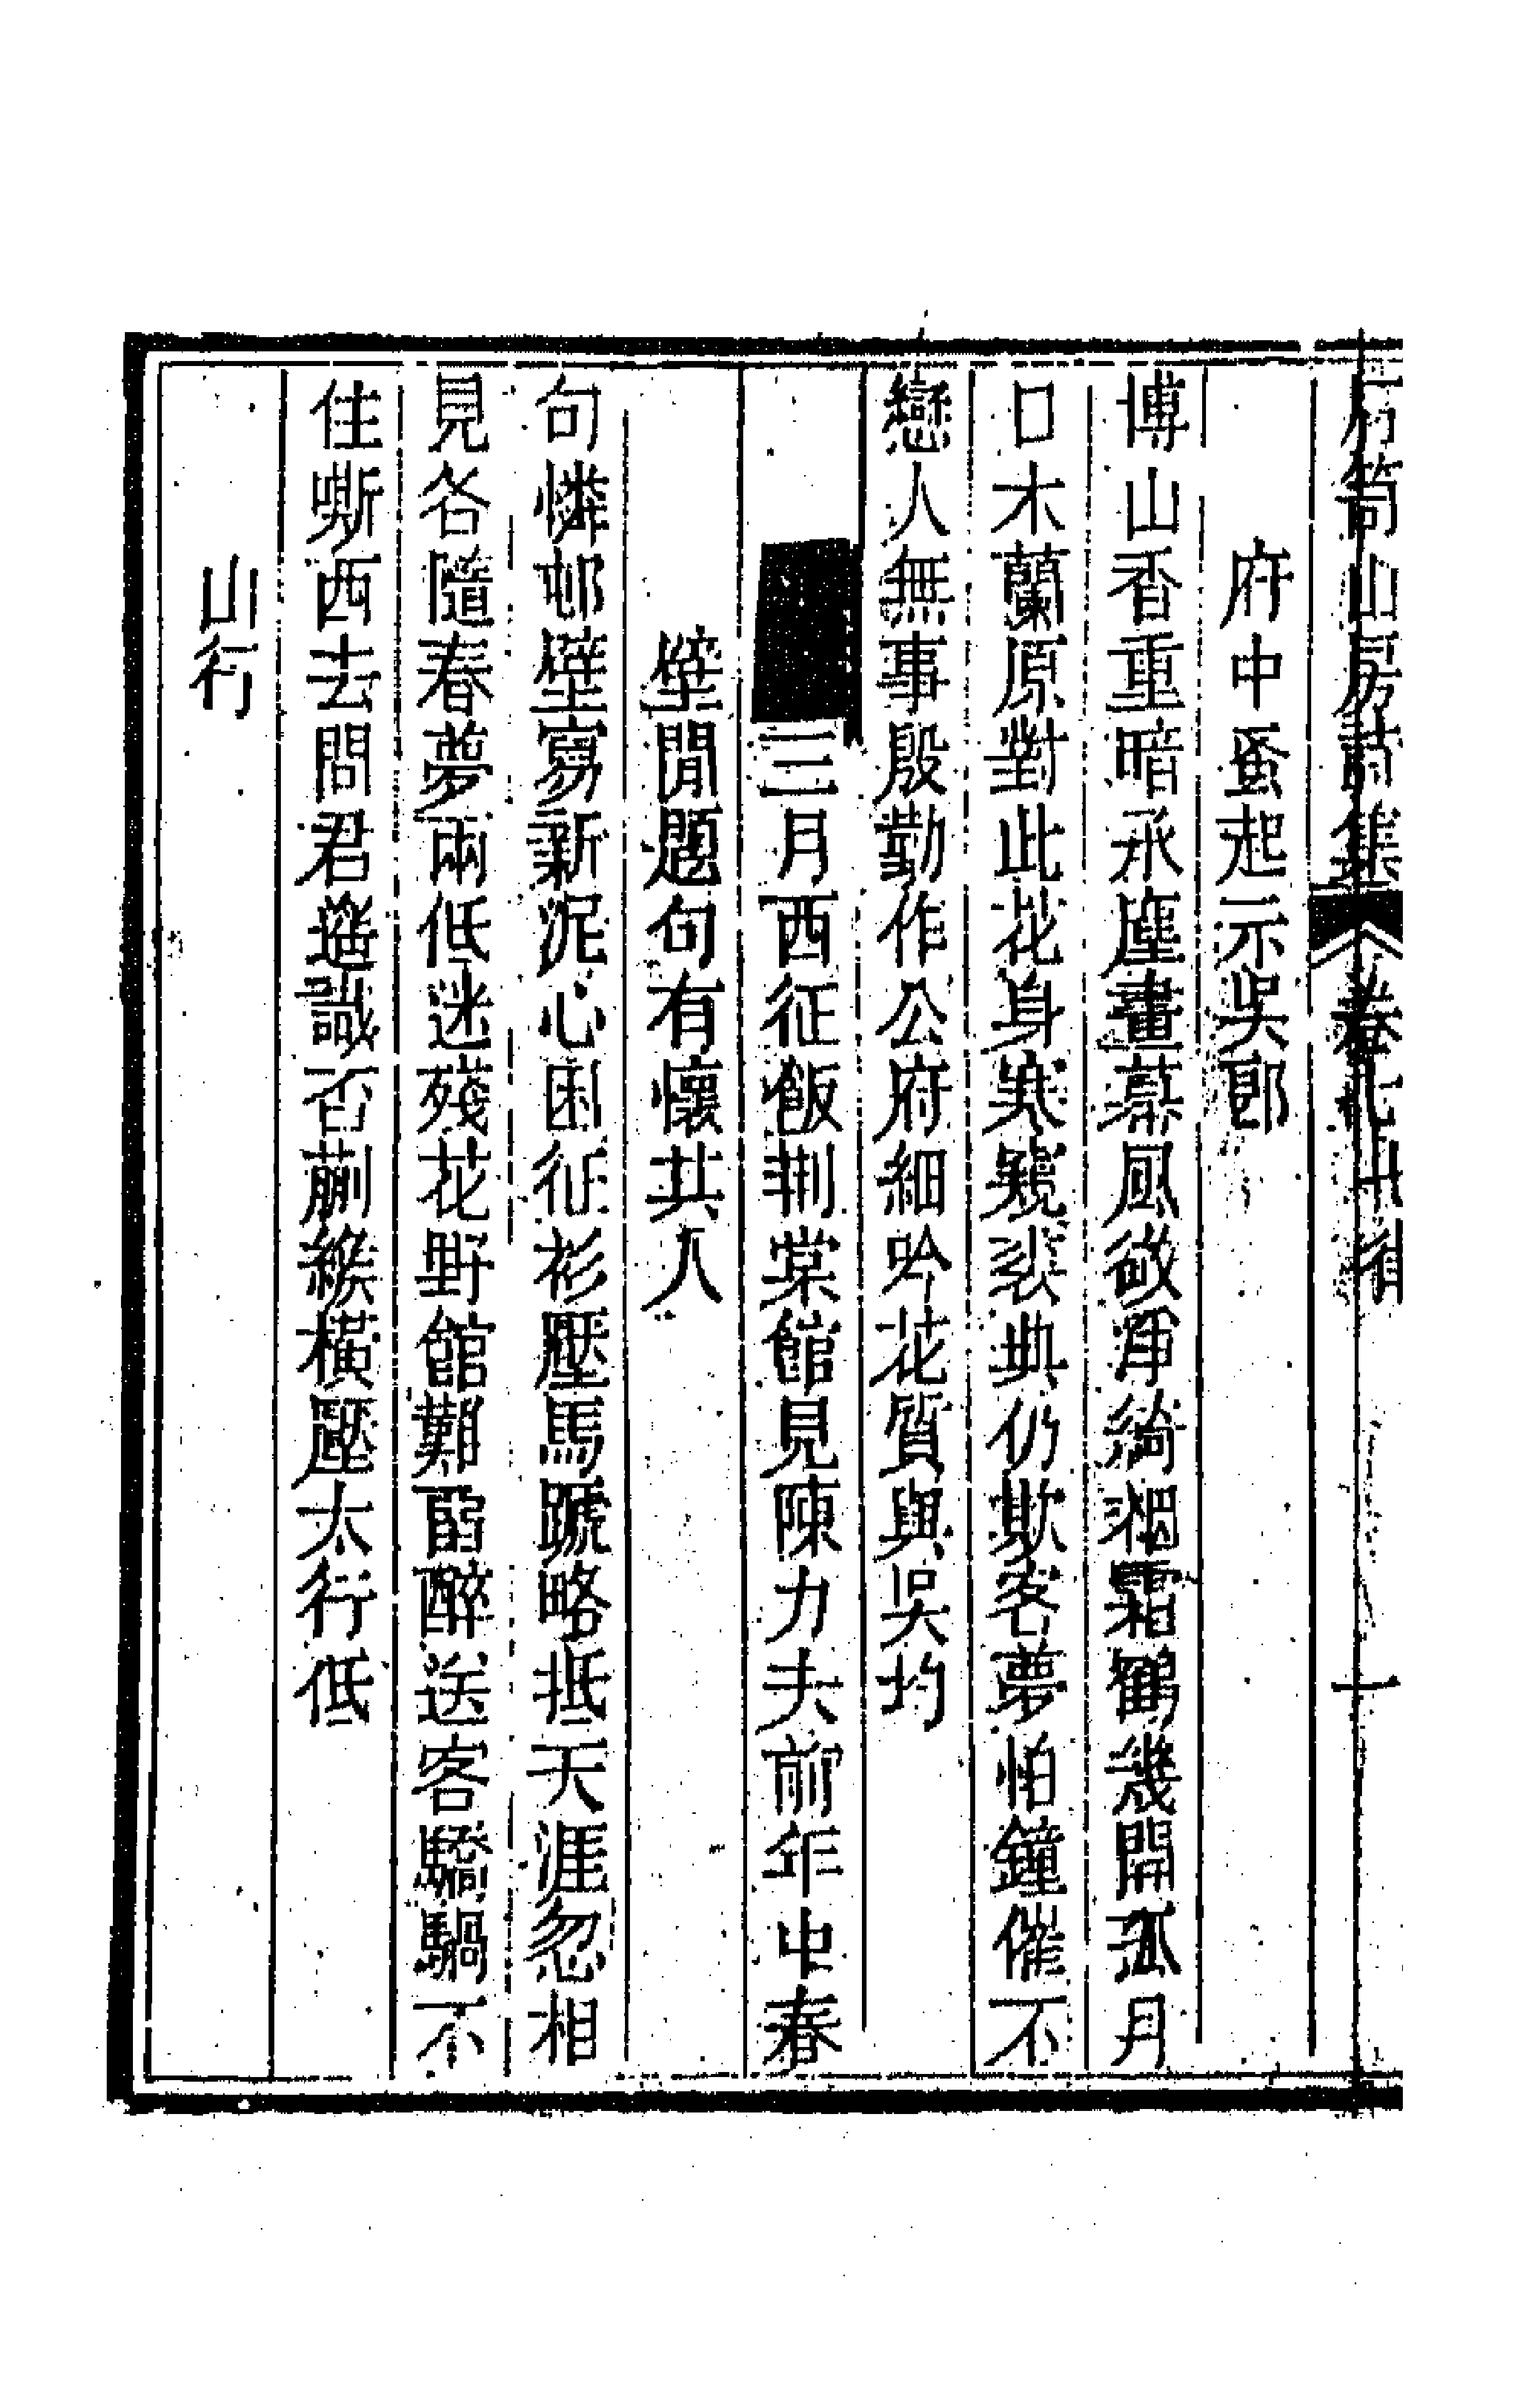 石笥山房詩集 卷 十
府中蚤起示吳郎
博山香重暗承塵畫幕風微淨綺裀霜鶴幾聞孤月
口木蘭原對此花身寒窺裘典仍欺客夢怕鐘催不
戀人無事殷勤作公府細吟花質與吳均
三月西征飯荆棠館見陳力夫前年中春
壁間題句有懷其人
句憐邨壁寫新泥心困征衫壓馬蹏略抵天涯忽相
見各隨春夢兩低迷殘花野館難留醉送客驕騧不
住嘶西去問君遙識否蒯緱橫壓太行低
山行